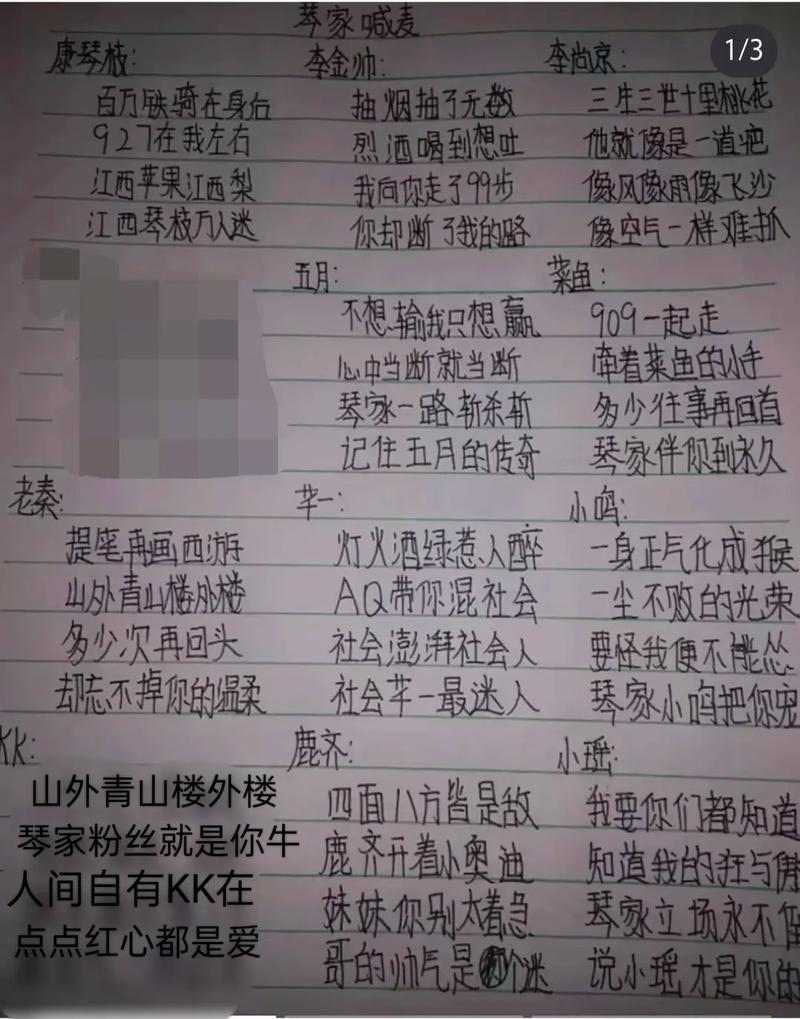 琴家喊麦
1/3
康琴枝:
百万铁骑在身后
927在我左右
江西苹果江西梨
江西琴枝万人迷
李金帅:
抽烟抽了无数
烈酒喝到想吐
我向你走了99步
你却断了我的路
李尚京:
三生三世十里桃花
他就像是一道疤
像风像雨像飞沙
像空气一样难抓
五月:
不想输我只想赢
心中当断就当断
琴家一路斩杀斩
记住五月的传奇
菜鱼:
909一起走
牵着菜鱼的小手
多少往事再回首
琴家伴你到永久
老秦:
提笔再画西游
山外青山楼外楼
多少次再回头
却忘不掉你的温柔
芊一:
灯火酒绿惹人醉
AQ带你混社会
社会澎湃社会人
社会芊一最迷人
小鸣:
一身正气化成猴
一尘不败的光荣
要怪我便不能怂
琴家小鸣把你宠
KK:
山外青山楼外楼
琴家粉丝就是你牛
人间自有KK在
点点红心都是爱
鹿齐:
四面八方皆是敌
鹿齐开着小奥迪
妹妹你别太着急
哥的帅气是个迷
小瑶:
我要你们都知道
知道我的狂与傲
琴家立场永不
说小瑶才是你的